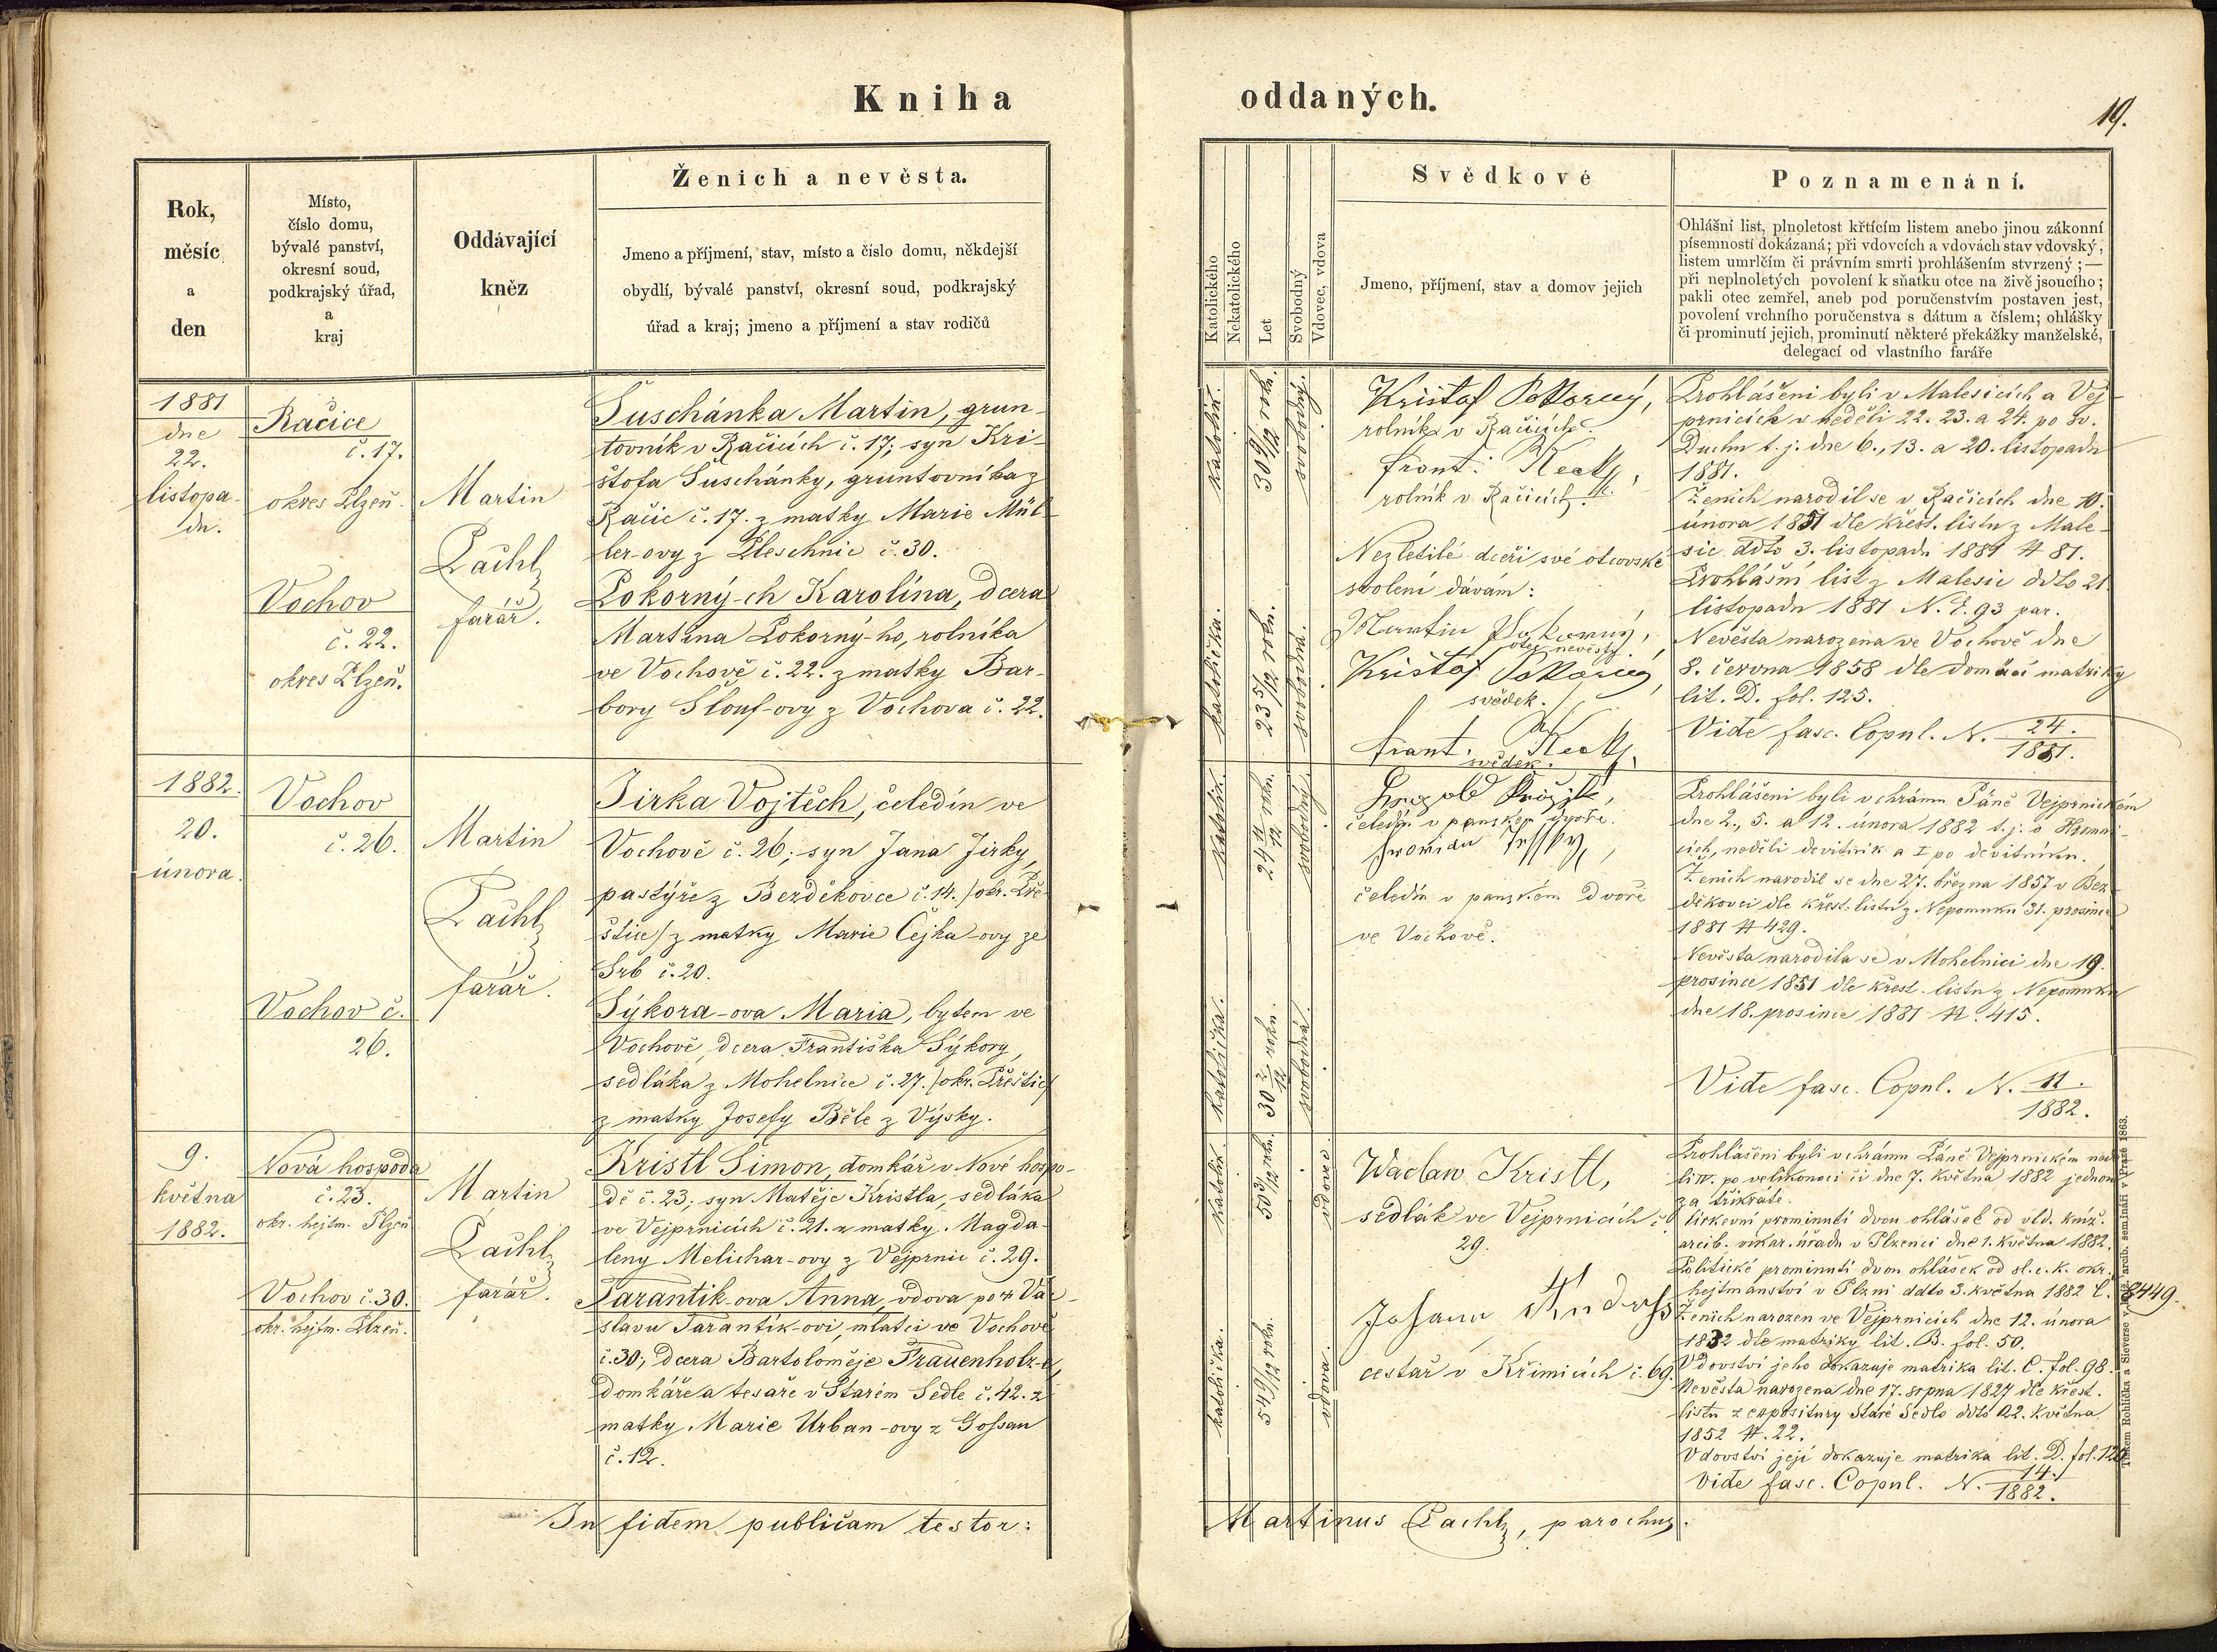 Kniha
oddaných.
19.
Rok,
měsíc
a
den
Místo,
číslo domu,
bývalé panství,
okresní soud,
podkrajský úřad,
a
kraj
Oddávající
kněz
Ženich a nevěsta.
Jmeno a příjmení, stav, místo a číslo domu, někdejší
obydlí, bývalé panství, okresní soud, podkrajský
úřad a kraj; jmeno a příjmení a stav rodičů
Katolického
Nekatolického
Let
Svobodný
Vdovec, vdova
Svědkové
Jmeno, příjmení, stav a domov jejich
Poznamenání.
Ohlášní list, plnoletost křtícím listem anebo jinou zákonní
písemností dokázaná; při vdovcích a vdovách stav vdovský,
listem umrlčím či právním smrti prohlášením stvrzený;—
při neplnoletých povolení k sňatku otce na živě jsoucího;
pakli otec zemřel, aneb pod poručenstvím postaven jest,
povolení vrchního poručenstva s dátum a číslem; ohlášky
či prominutí jejich, prominutí některé překážky manželské,
delegací od vlastního faráře
1881
dne
22.
listopa-
du.
Račice
č. 17.
okres Plzeň.
Vochov
č. 22.
okres Plzeň.
Martin
Pachl
farář.
Suschánka Martin, grun-
tovník v Račicích č. 17; syn Kri-
štofa Suschánky, gruntovníka z
Račic č. 17. z matky Marie Mül-
ler-ovy z Pleschnic č. 30.
Pokorný-ch Karolína, dcera
Martina Pokorný-ho, rolníka
ve Vochově č. 22. z matky Bar-
bory Šlouf-ovy z Vochova č. 22.
katolík.
30 9/12 roků.
svobodný.
katolička.
23 5/12 roků.
svobodna.
Krištof Pokorný,
rolník v Račicích.
Frant.
rolník v Račicích.
Nezletilé dceři své otcovské
svolení dávám:
Martin Pokorný,
otec nevěsty.
Krištof Pokorný,
svědek.
Frant.
svědek.
Prohlášeni byli v Malesicích a Vej-
prnicích v neděli 22. 23. a 24. po sv.
Duchu t. j. dne 6., 13. a 20. listopadu
1881.
Ženich narodil se v Račicích dne 10.
února 1851 dle křest. listu z Male-
sic ddto 3. listopadu 1881 # 81.
Prohlášní list z Malesic ddto 21.
listopadu 1881 N. E. 93 par.
Nevěsta narozena ve Vochově dne
8. června 1858 dle domácí matriky
lit. D. fol. 125.
Vide fasc. Copul. N. 24.
1881.
1882.
20.
února.
Vochov
č. 26.
Vochov č.
26.
Martin
Pachl
farář.
Jirka Vojtěch, čeledín ve
Vochově č. 26; syn Jana Jirky,
pastýře z Bezděkovce č. 14. /okr. Pře-
štice/ z matky Marie Čejka-ovy ze
Srb č. 20.
Sýkora-ova Maria, bytem ve
Vochově, dcera Františka Sýkory,
sedláka z Mohelnice č. 27. /okr. Přeštic/
z matky Josefy Běle z Výsky.
katolík.
24 11/12 roků.
svobodný.
katolička.
30 2/12 roků.
svobodná.
čeledín v panském dvoře.
čeledín v panském dvoře
ve Vochově.
Prohlášeni byli v chrámu Páně Vejprnickém
dne 2., 5. a 12. února 1882 t. j. o Hromni-
cích, neděli devítník a I po devítníku.
Ženich narodil se dne 27. března 1857 v Bez-
děkovci dle křest. listu z Nepomuku 31. prosince
1881 # 429.
Nevěsta narodila se v Mohelnici dne 19.
prosince 1851 dle křest. listu z Nepomuku
dne 18. prosince 1881 # 415.
Vide fasc. Copul. N. 11.
1882.
9.
května
1882.
Nová hospoda
č. 23.
okr. hejtm. Plzeň
Vochov č. 30.
okr. hejtm. Plzeň.
Martin
Pachl
farář.
Kristl Šimon, domkář v Nové hospo-
dě č. 23; syn Matěje Kristla, sedláka
ve Vejprnicích č. 21. z matky Magda-
leny Melichar-ovy z Vejprnic č. 29.
Tarantik-ova Anna, vdova po Vác-
slavu Tarantík-ovi, mlatci ve Vochově
č. 30; dcera Bartoloměje Frauenholz-a,
domkáře a tesaře v Starém Sedle č. 42. z
matky Marie Urban-ovy z Gossau
č. 12.
katolík.
50 3/12 roků.
vdovec.
katolička.
54 9/12 roků.
vdova.
Waclaw Kristl,
sedlák ve Vejprnicích č.
29.
Johann
cestář v Křimicích č. 69.
Prohlášeni byli v chrámu Páně Vejprnickém ned
li IV. po velikonoci či dne 7. května 1882 jednou
za třikráte.
Církevní prominutí dvou ohlášek od vld. kníž.
arcib. vikar. úřadu v Plzenci dne 1. května 1882.
Politické prominutí dvou ohlášek od sl. c. k. okr.
hejtmanství v Plzni ddto 3. května 1882 č. 8449.
Ženich narozen ve Vejprnicích dne 12. února
1832 dle matriky lit. B. fol. 50.
Vdovství jeho dokazuje matrika lit. C. fol. 98.
Nevěsta narozena dne 17. srpna 1827 dle křest.
listu z expositury Staré Sedlo ddto 22. května
1852 #. 22.
Vdovství její dokazuje matrika lit. D. fol.
Vide fasc. Copul. N. 14.
1882.
In fidem publicam testor:
Martinus Pachl, parochus.